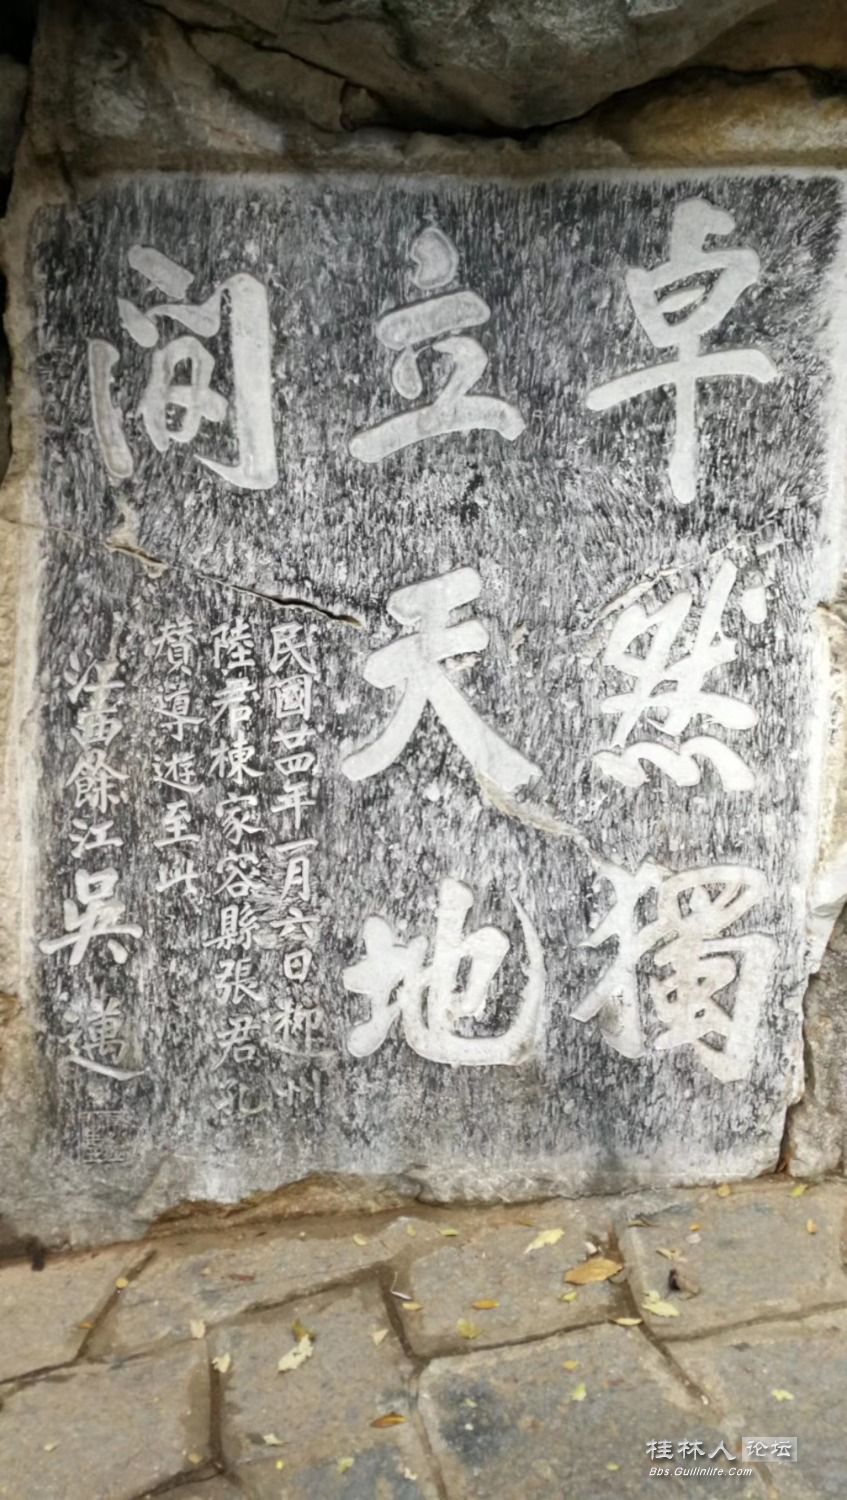 卓然獨
立天地
间
民國廿四年一月六日柳州
陸君棟家容縣張君孔
贊導遊至此
江西餘江吳邁
桂林人论坛
Bbs.Guilinlife.Com